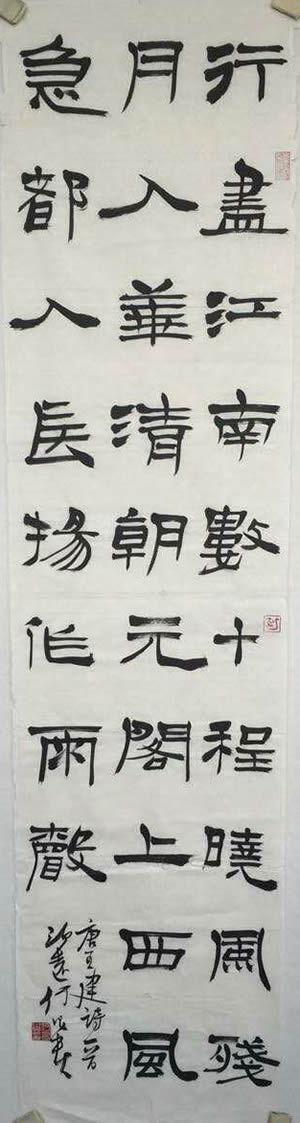 行盡江南數十程曉風殘
月入華清朝元閣上西風
急都入長楊作雨聲
唐王建詩一首